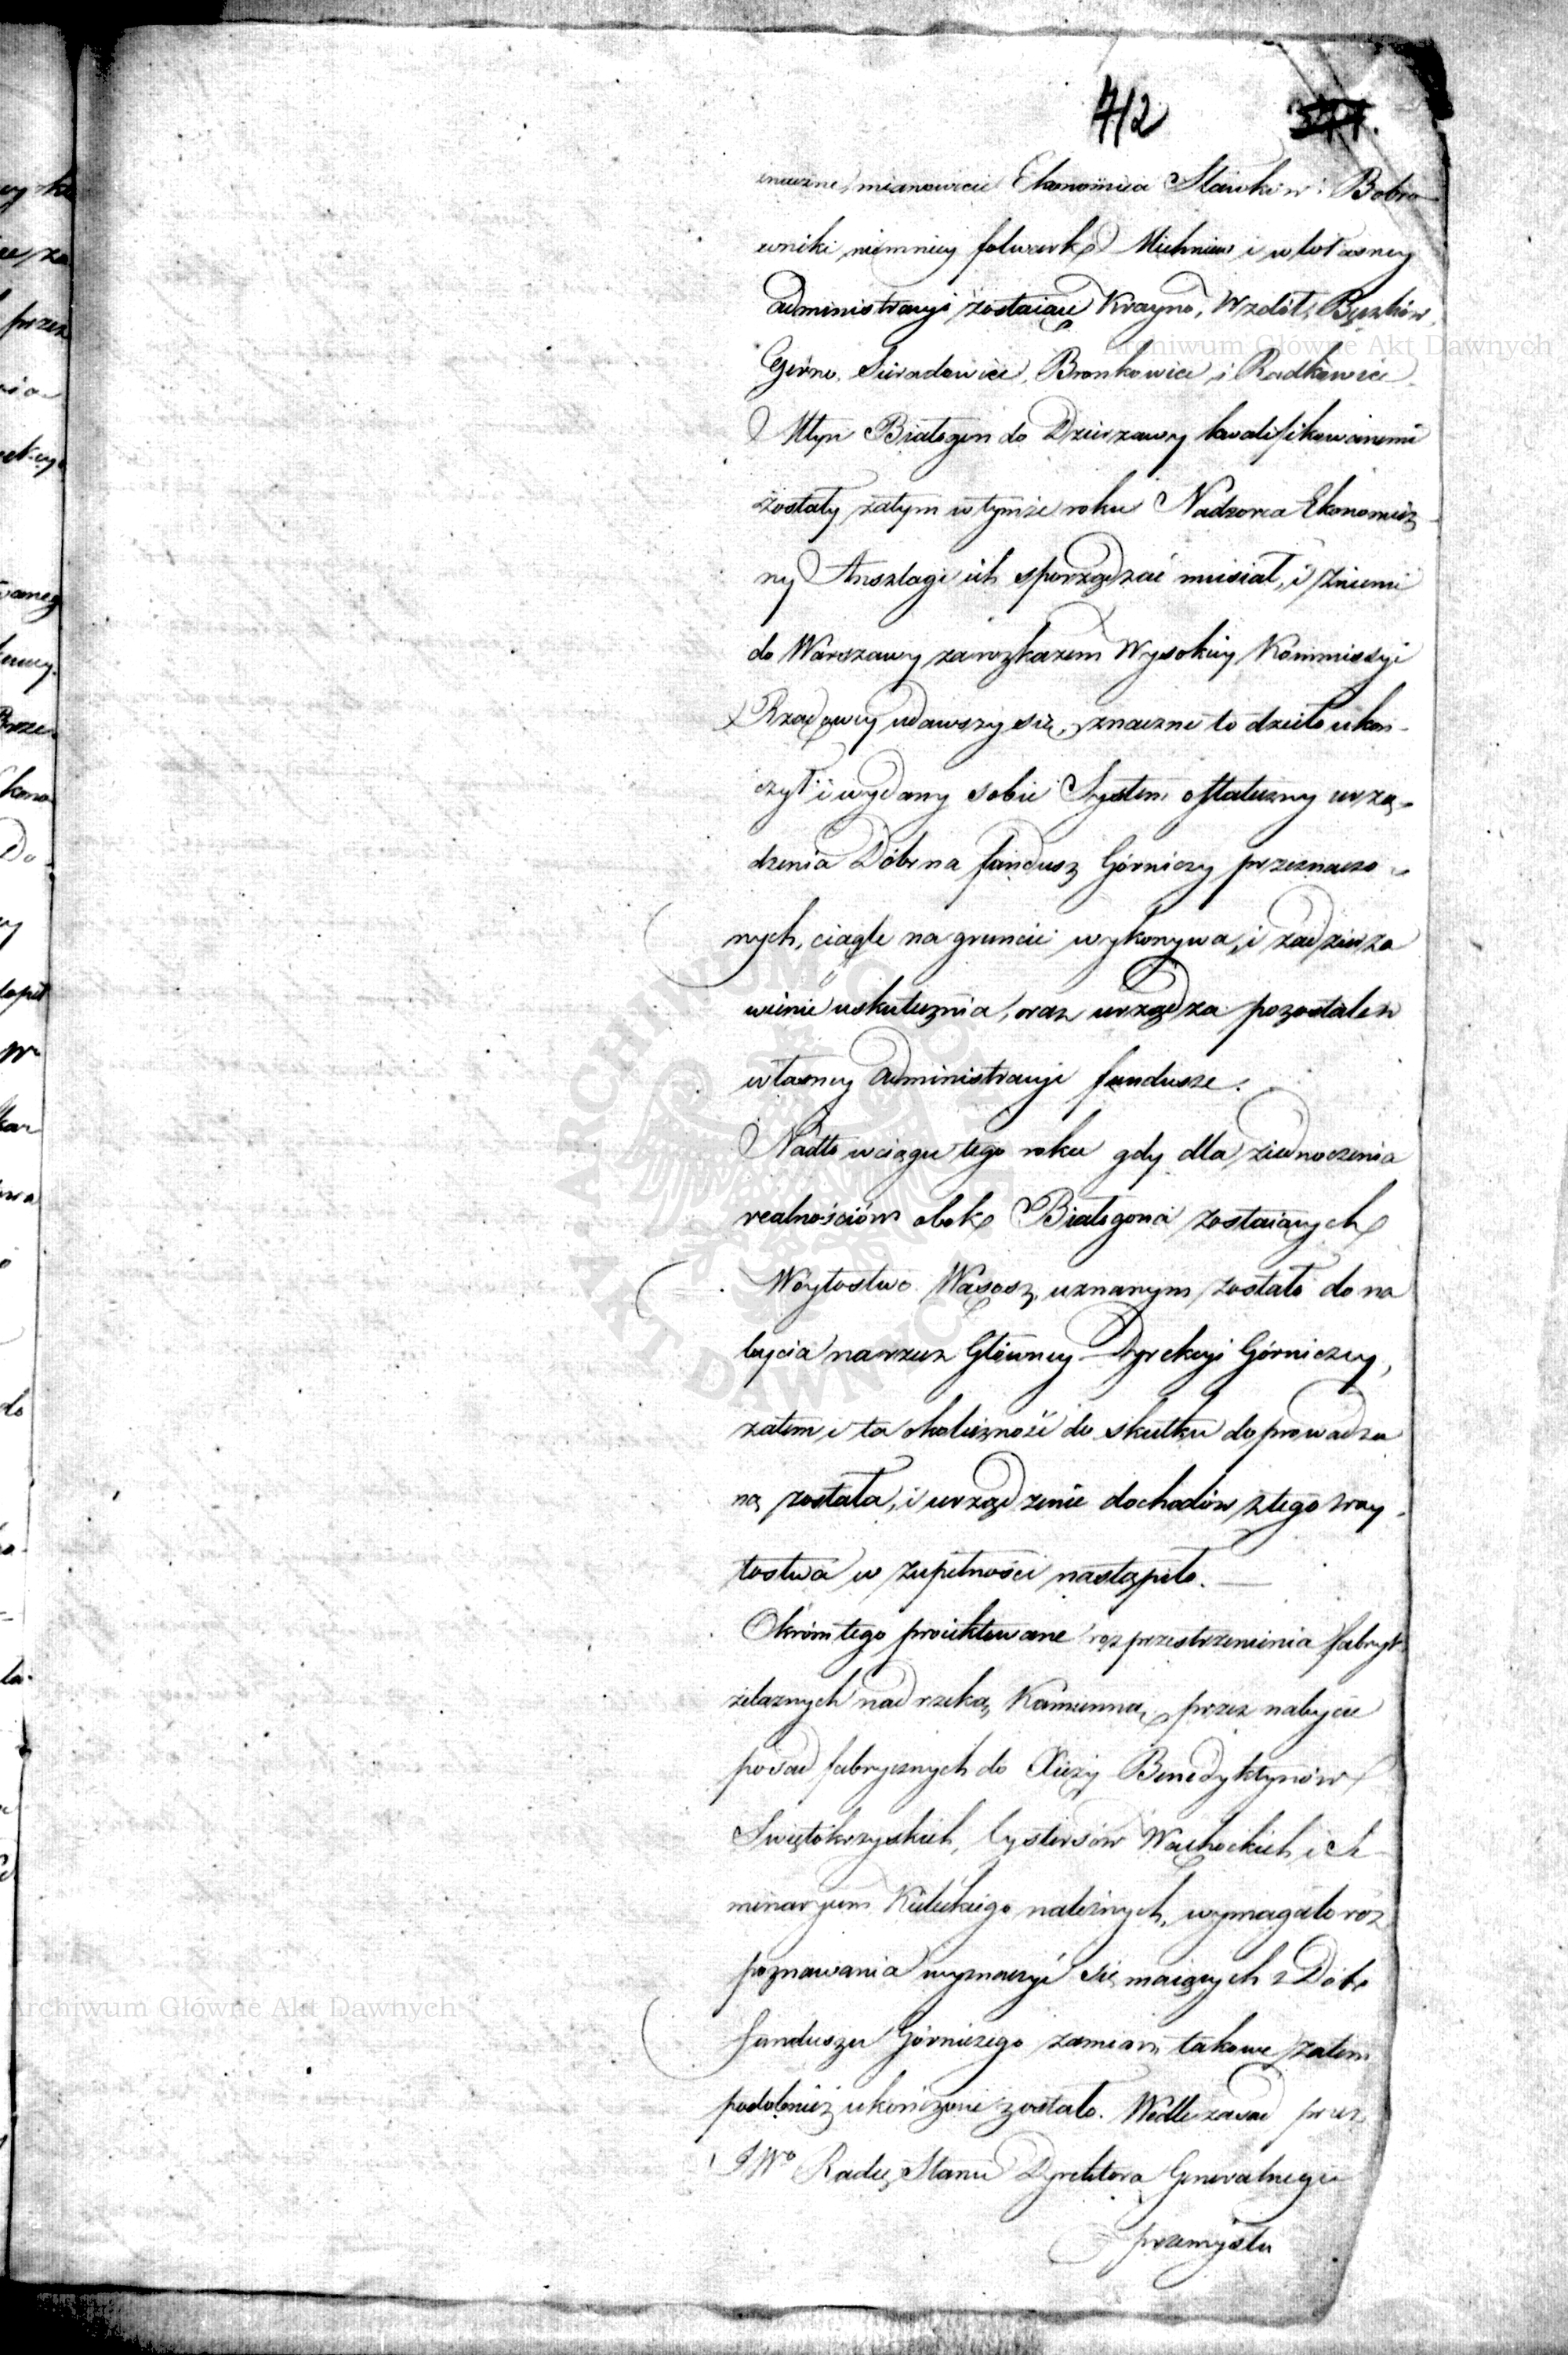 412 377.
znaczne, mianowicie Ekonomica Sławków i Bobro
wniki niemniey folwark Michniew i w własney
administracyi zostaiące Krayno, Wzdół, Bęczków,
Górno, Sieradowice, Bronkowice i Radkowice
Młyn Białogon do Dzierzawy kwalifikowanemi
zostały zatym w tymże roku Nadzorca Ekonomicz
ny Anszlagi ich sporządzać musiał, i z niemi
do Warszawy za rozkazem Wysokiey Kommissyi
Rządowey udawszy się, znaczne to dzieło ukoń-
czył i wydany sobie System ostateczny urzą-
dzenia Dóbr na fundusz Górniczy przeznaczo-
nych, ciągle na gruncie wykonywa, i zadzierza
wienie uskutecznia, oraz urządza pozostałe w
własney administracyi fundusze.
Nadto w ciągu tego roku gdy dla ziednoczenia
realnościów obok Białogona zostaiących
Woytostwo Wąsosz, uznanym zostało do na
bycia na rzecz Główney Dyrekcyi Górniczey,
zatem i ta okoliczność do skutku doprowadzo
ną została, i urządzenie dochodów z tego Woy-
tostwa w zupełności nastąpiło.
Okrom tego proiektowane rozprzestrzenienia fabryk
żelaznych nad rzeką Kamienną, przez nabycie
posad fabrycznych do Xięży Benedyktynów
Swiętokrzyskich, Cystersów Wąchockich i Se
minaryum Kieleckiego należnych, wymagało roz
poznawania wyznaczyć się maiących z Dóbr
funduszu Górniczego zamian, takowe zatem
podobnież ukończone zostało. Wedle zasad przez
JWo Radcę Stanu Dyrektora Generalnego
przemysłu
Archiwum Główne Akt Dawnych
Archiwum Główne Akt Dawnych
ARCHIWUM GŁÓWNE AKT DAWNYCH